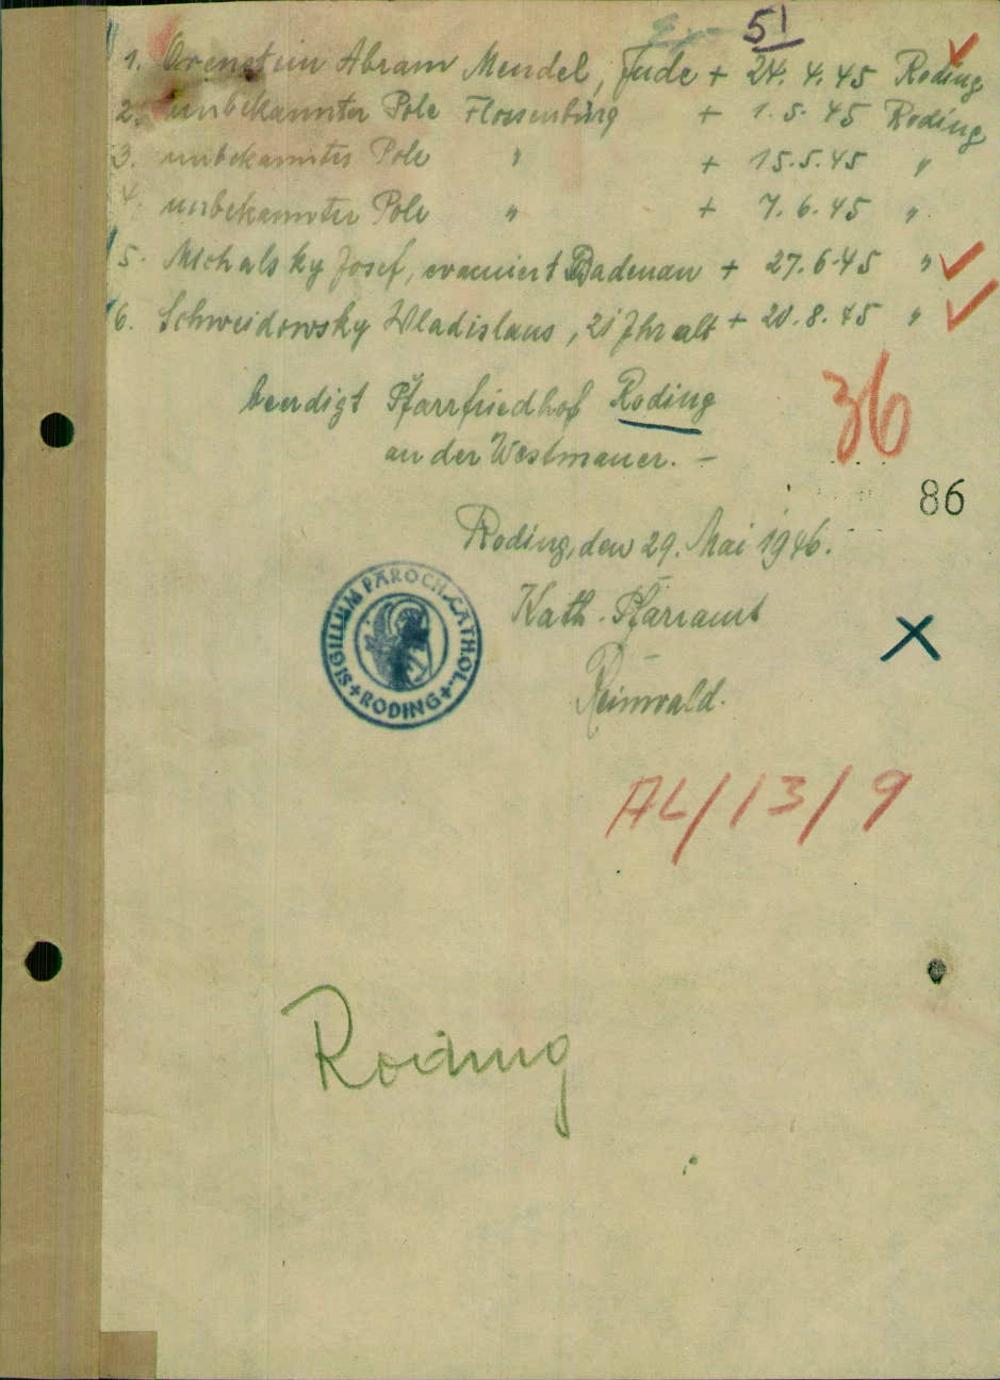 51
1. Orenstein Abram Mendel, Jude + 24. 4. 45 Roding
2. unbekannter Pole Flossenbürg + 1. 5. 45 Roding
3. unbekannter Pole " + 15. 5. 45 "
4. unbekannter Pole " + 7. 6. 45 "
5. Michalsky Josef, evacuiert + 27. 6. 45 "
6. Schweidowsky Wladislaus, 21 Jhr alt + 20. 8. 45 "
beerdigt Pfarrfriedhof Roding
an der Westmauer. –
36
86
Roding, den 29. Mai 1946.
Kath. Pfarramt
SIGILLUM PAROCH. CATHOL. + RODING +
Reinwald.
AL/13/9
Roding